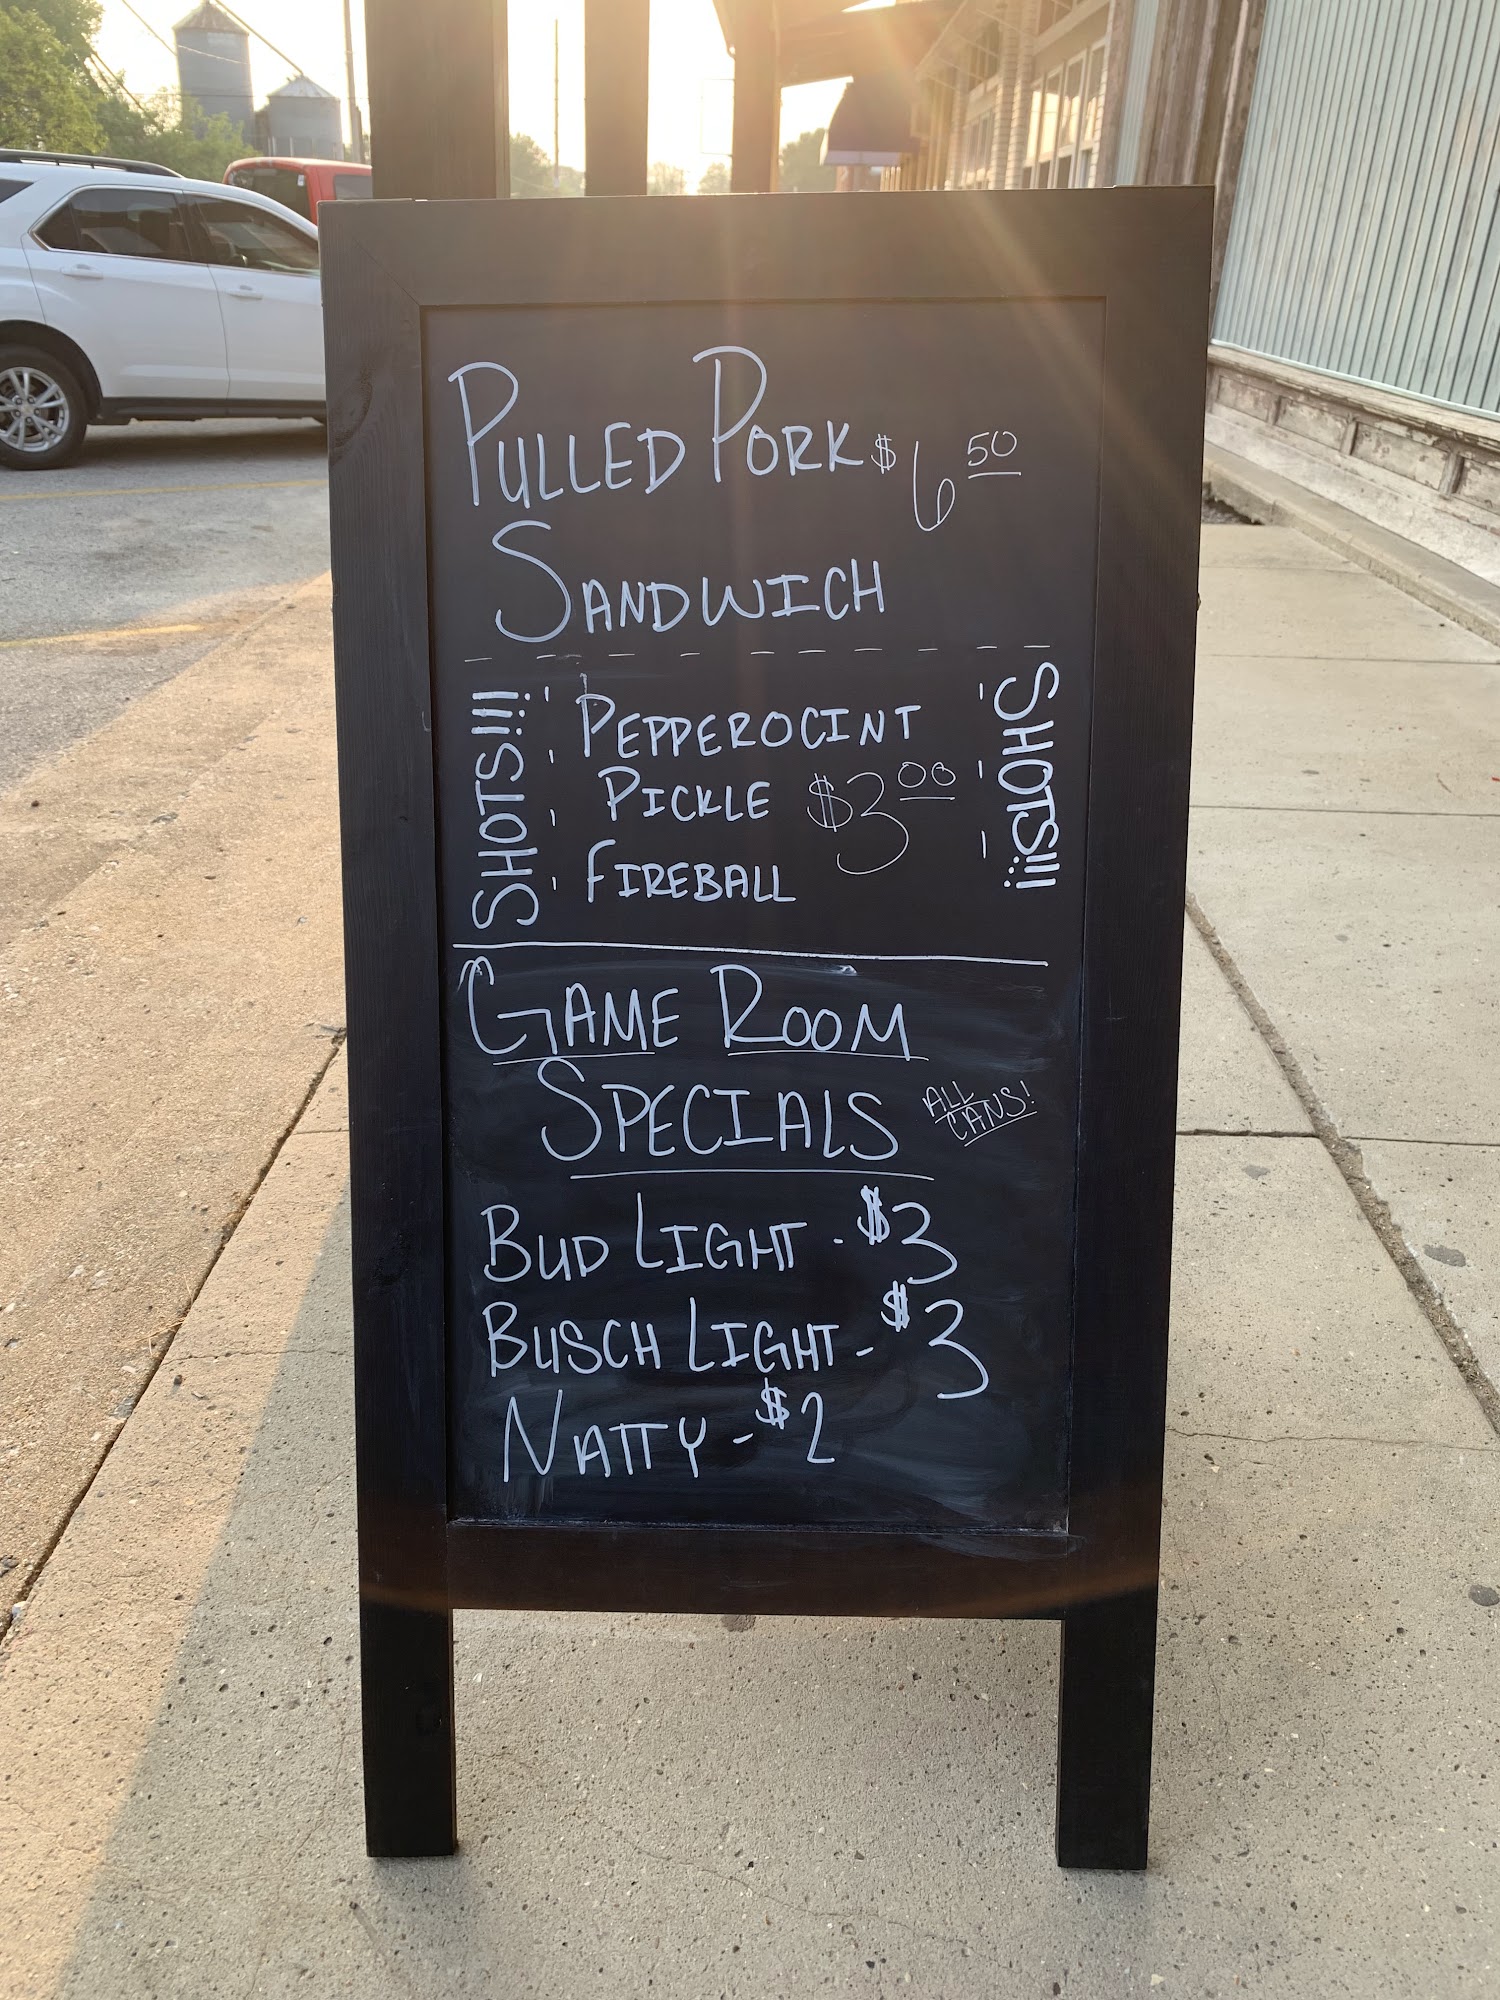 PULLED PORK $6 50
SANDWICH
SHOTS!!!
PEPPEROCINT
PICKLE $3 00
FIREBALL
SHOTS!!!
GAME ROOM
SPECIALS
ALL
CANS!
BUD LIGHT - $3
BUSCH LIGHT - $3
NATTY - $2